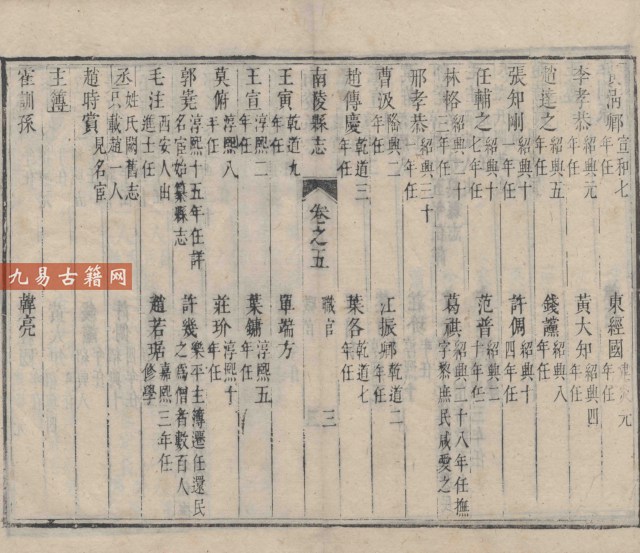 鄉 宣和七年任 東經國 建炎元年任
李孝恭 紹興元年任 黃大知 紹興四年任
趙達之 紹興五年任 錢黨 紹興八年任
張知剛 紹興十年任 許倜 紹興十四年任
任輔之 紹興十七年任 范普 紹興十二年任
林輅 紹興二十三年任 葛祺 紹興二十八年任撫字黎庶民咸愛之
邢孝恭 紹興三十一年任
曹汲 隆興二年任 江振鄉 乾道二年任
趙傳慶 乾道三年任 葉各 乾道七年任
南陵縣志 卷之五 職官 三
王寅 乾道九年任 單端方
王宣 淳熙二年任 葉鏞 淳熙五年任
莫俯 淳熙八年任 莊玠 淳熙十年任
郭堯 淳熙十五年任詳名宦始纂縣志 許幾 樂平主簿遷任還民之爲僧者數百人
毛注 西安人由進士任 趙若琚 嘉熙三年任修學
丞 姓氏闕舊志只載趙一人
趙時賞 見名宦
主簿
崔訓孫 韓亮
九易古籍网